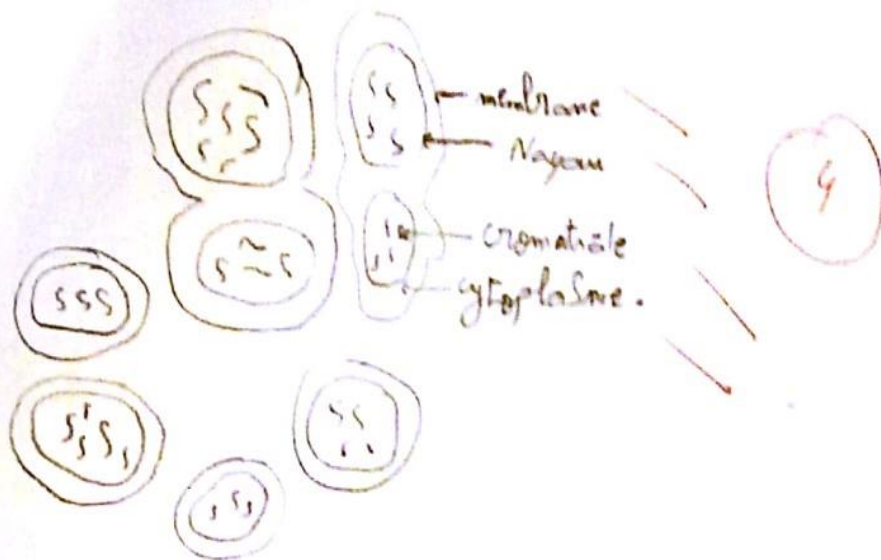 membrane
Noyau
cromatide
cytoplasme.
4